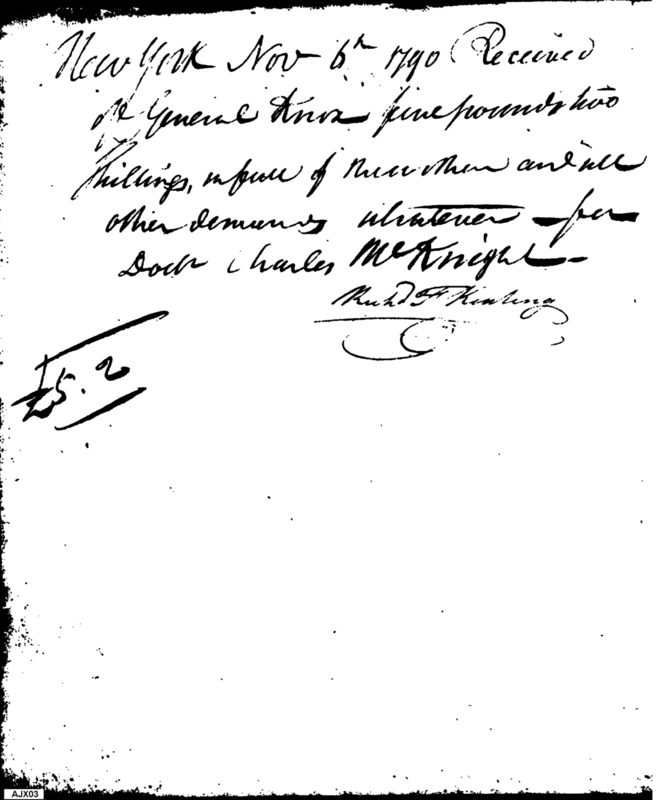 New York Nov 6th 1790 Received
of General Knox five pounds two
Shillings, in full of this or other and all
other demands whatever for
Doctr Charles McKnight
Richd F Keating
£5.2
AJX03